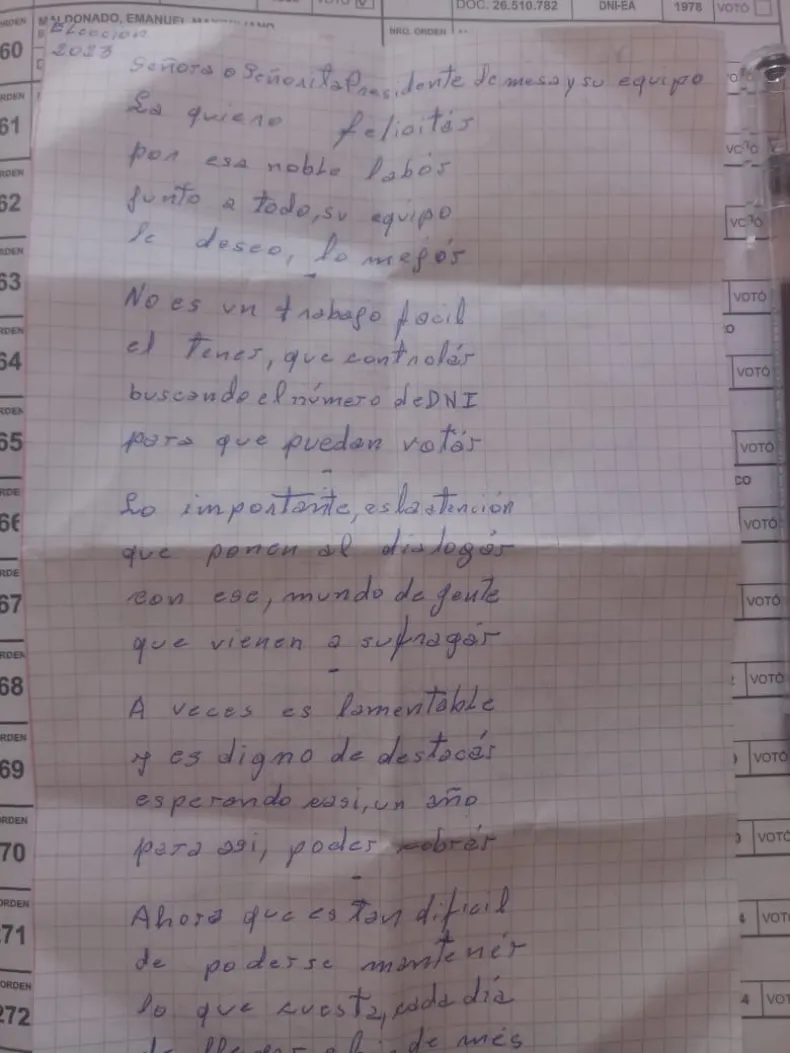 DOC. 26.510.782
DNI-EA
1978
VOTÓ
MALDONADO, EMANUEL
NRO. ORDEN
Elección
2023
Señora o Señorita Presidente de mesa y su equipo
La quiero felicitár
por esa noble labór
junto a todo, su equipo
le deseo, lo mejór
No es un trabajo facil
el tener, que controlár
buscando el número de DNI
para que puedan votár
Lo importante, es la atención
que ponen al dialogár
con ese, mundo de gente
que vienen a sufragár
A veces es lamentable
y es digno de destacár
esperando casi, un año
para asi, poder cobrár
Ahora que es tan dificil
de poderse mantenér
lo que cuesta, cada día
de llegar a fin de més
60
61
62
63
64
65
66
67
68
69
70
271
272
ORDEN
VOTÓ
VOTÓ
VOTÓ
VOTÓ
VOTÓ
VOTÓ
VOTÓ
VOTÓ